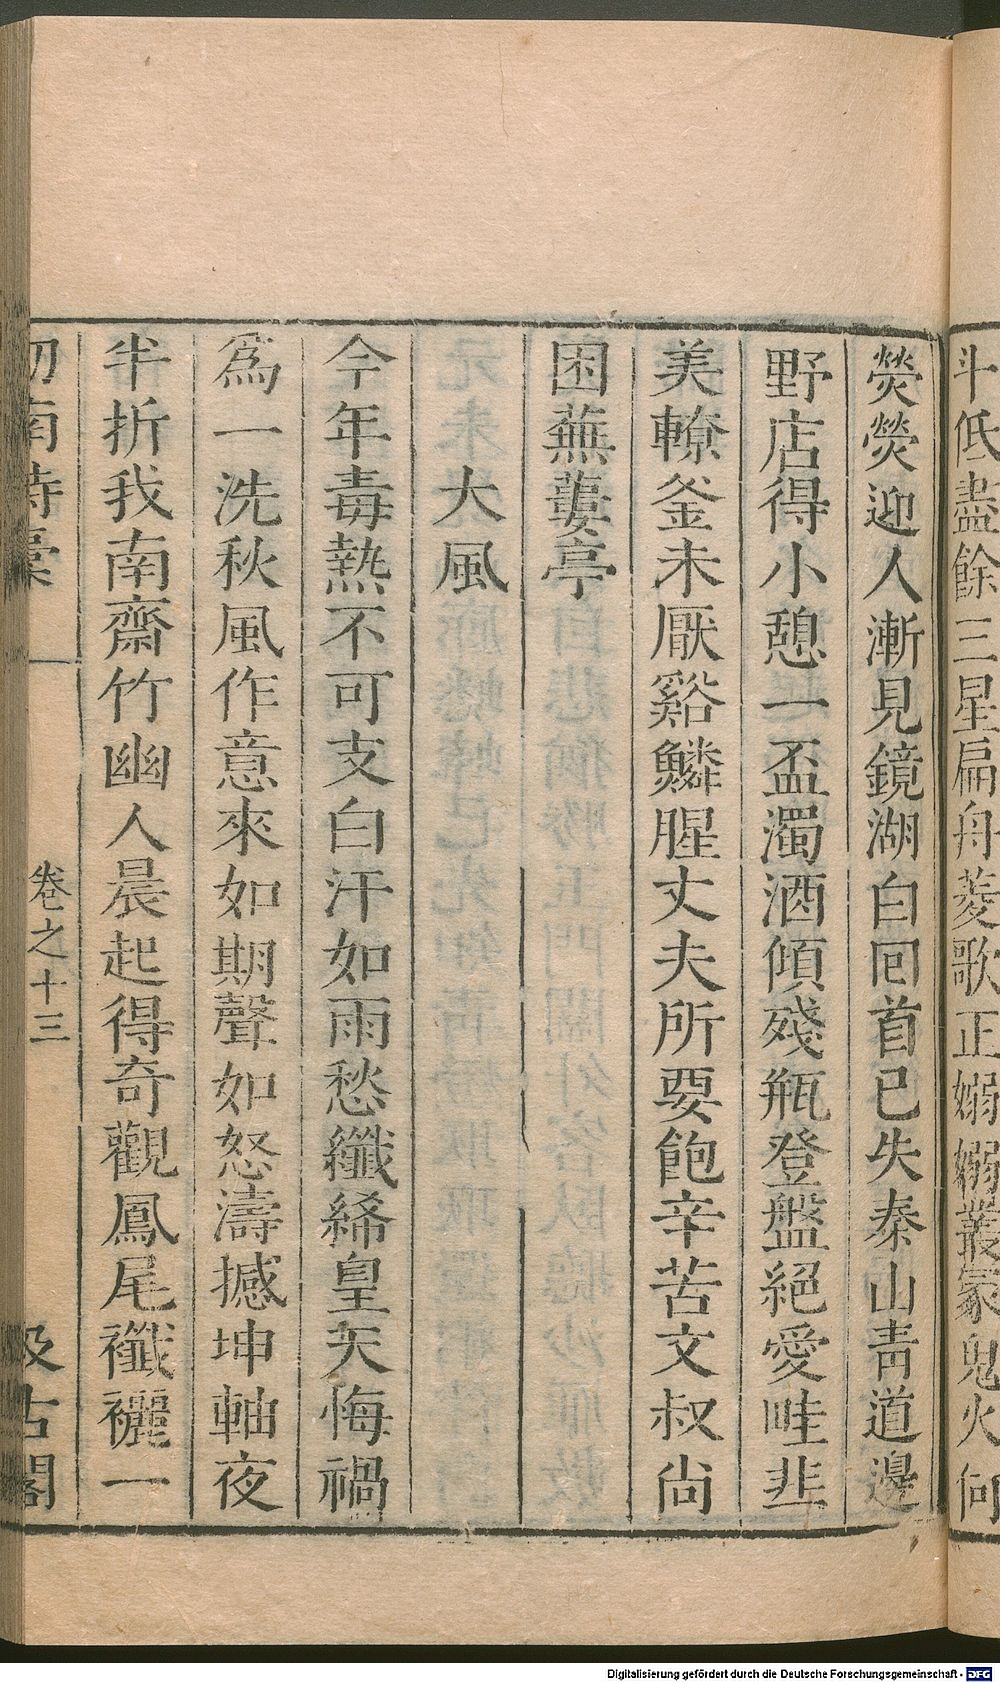 斗低盡餘三星扁舟菱歌正嫋嫋叢冢鬼火何
熒熒迎人漸見鏡湖白回首已失秦山靑道邊
野店得小憩一盃濁酒傾殘瓶登盤絕愛畦韭
美轑釜未厭谿鱗腥丈夫所要飽辛苦文叔尙
困蕪蔞亭
大風
今年毒熱不可支白汗如雨愁纖絺皇天悔禍
爲一洗秋風作意來如期聲如怒濤撼坤軸夜
半折我南齋竹幽人晨起得奇觀鳳尾襳襹一
劒南詩稾
卷之十三
汲古閣
Digitalisierung gefördert durch die Deutsche Forschungsgemeinschaft - DFG